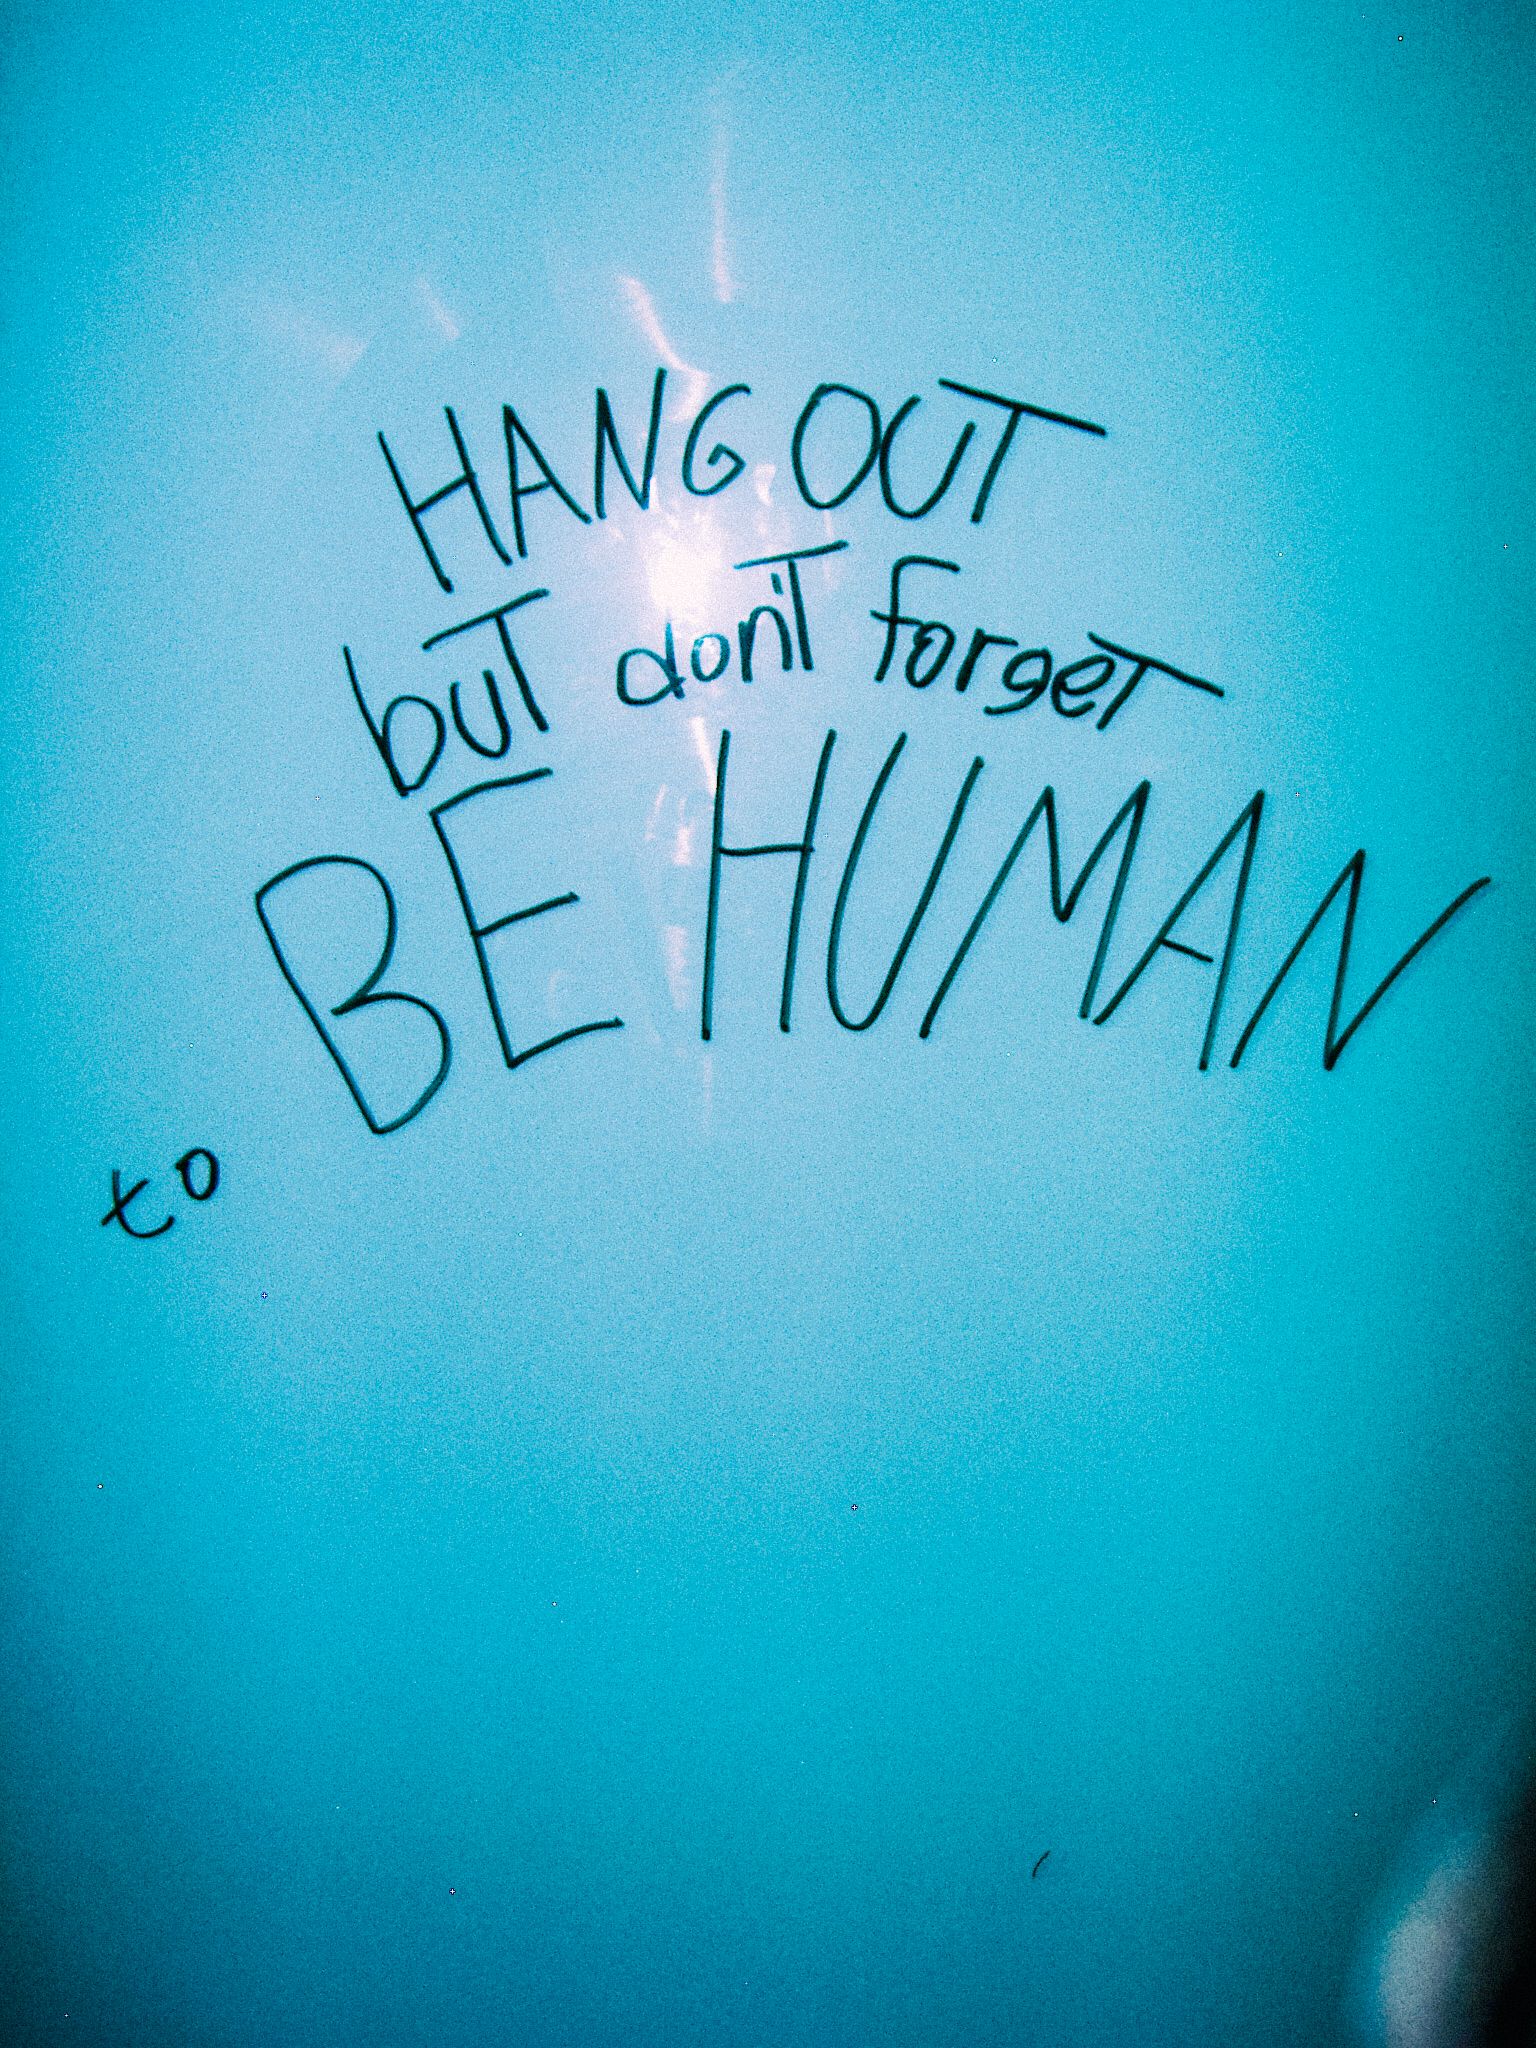 HANG OUT
but don't forget
to BE HUMAN